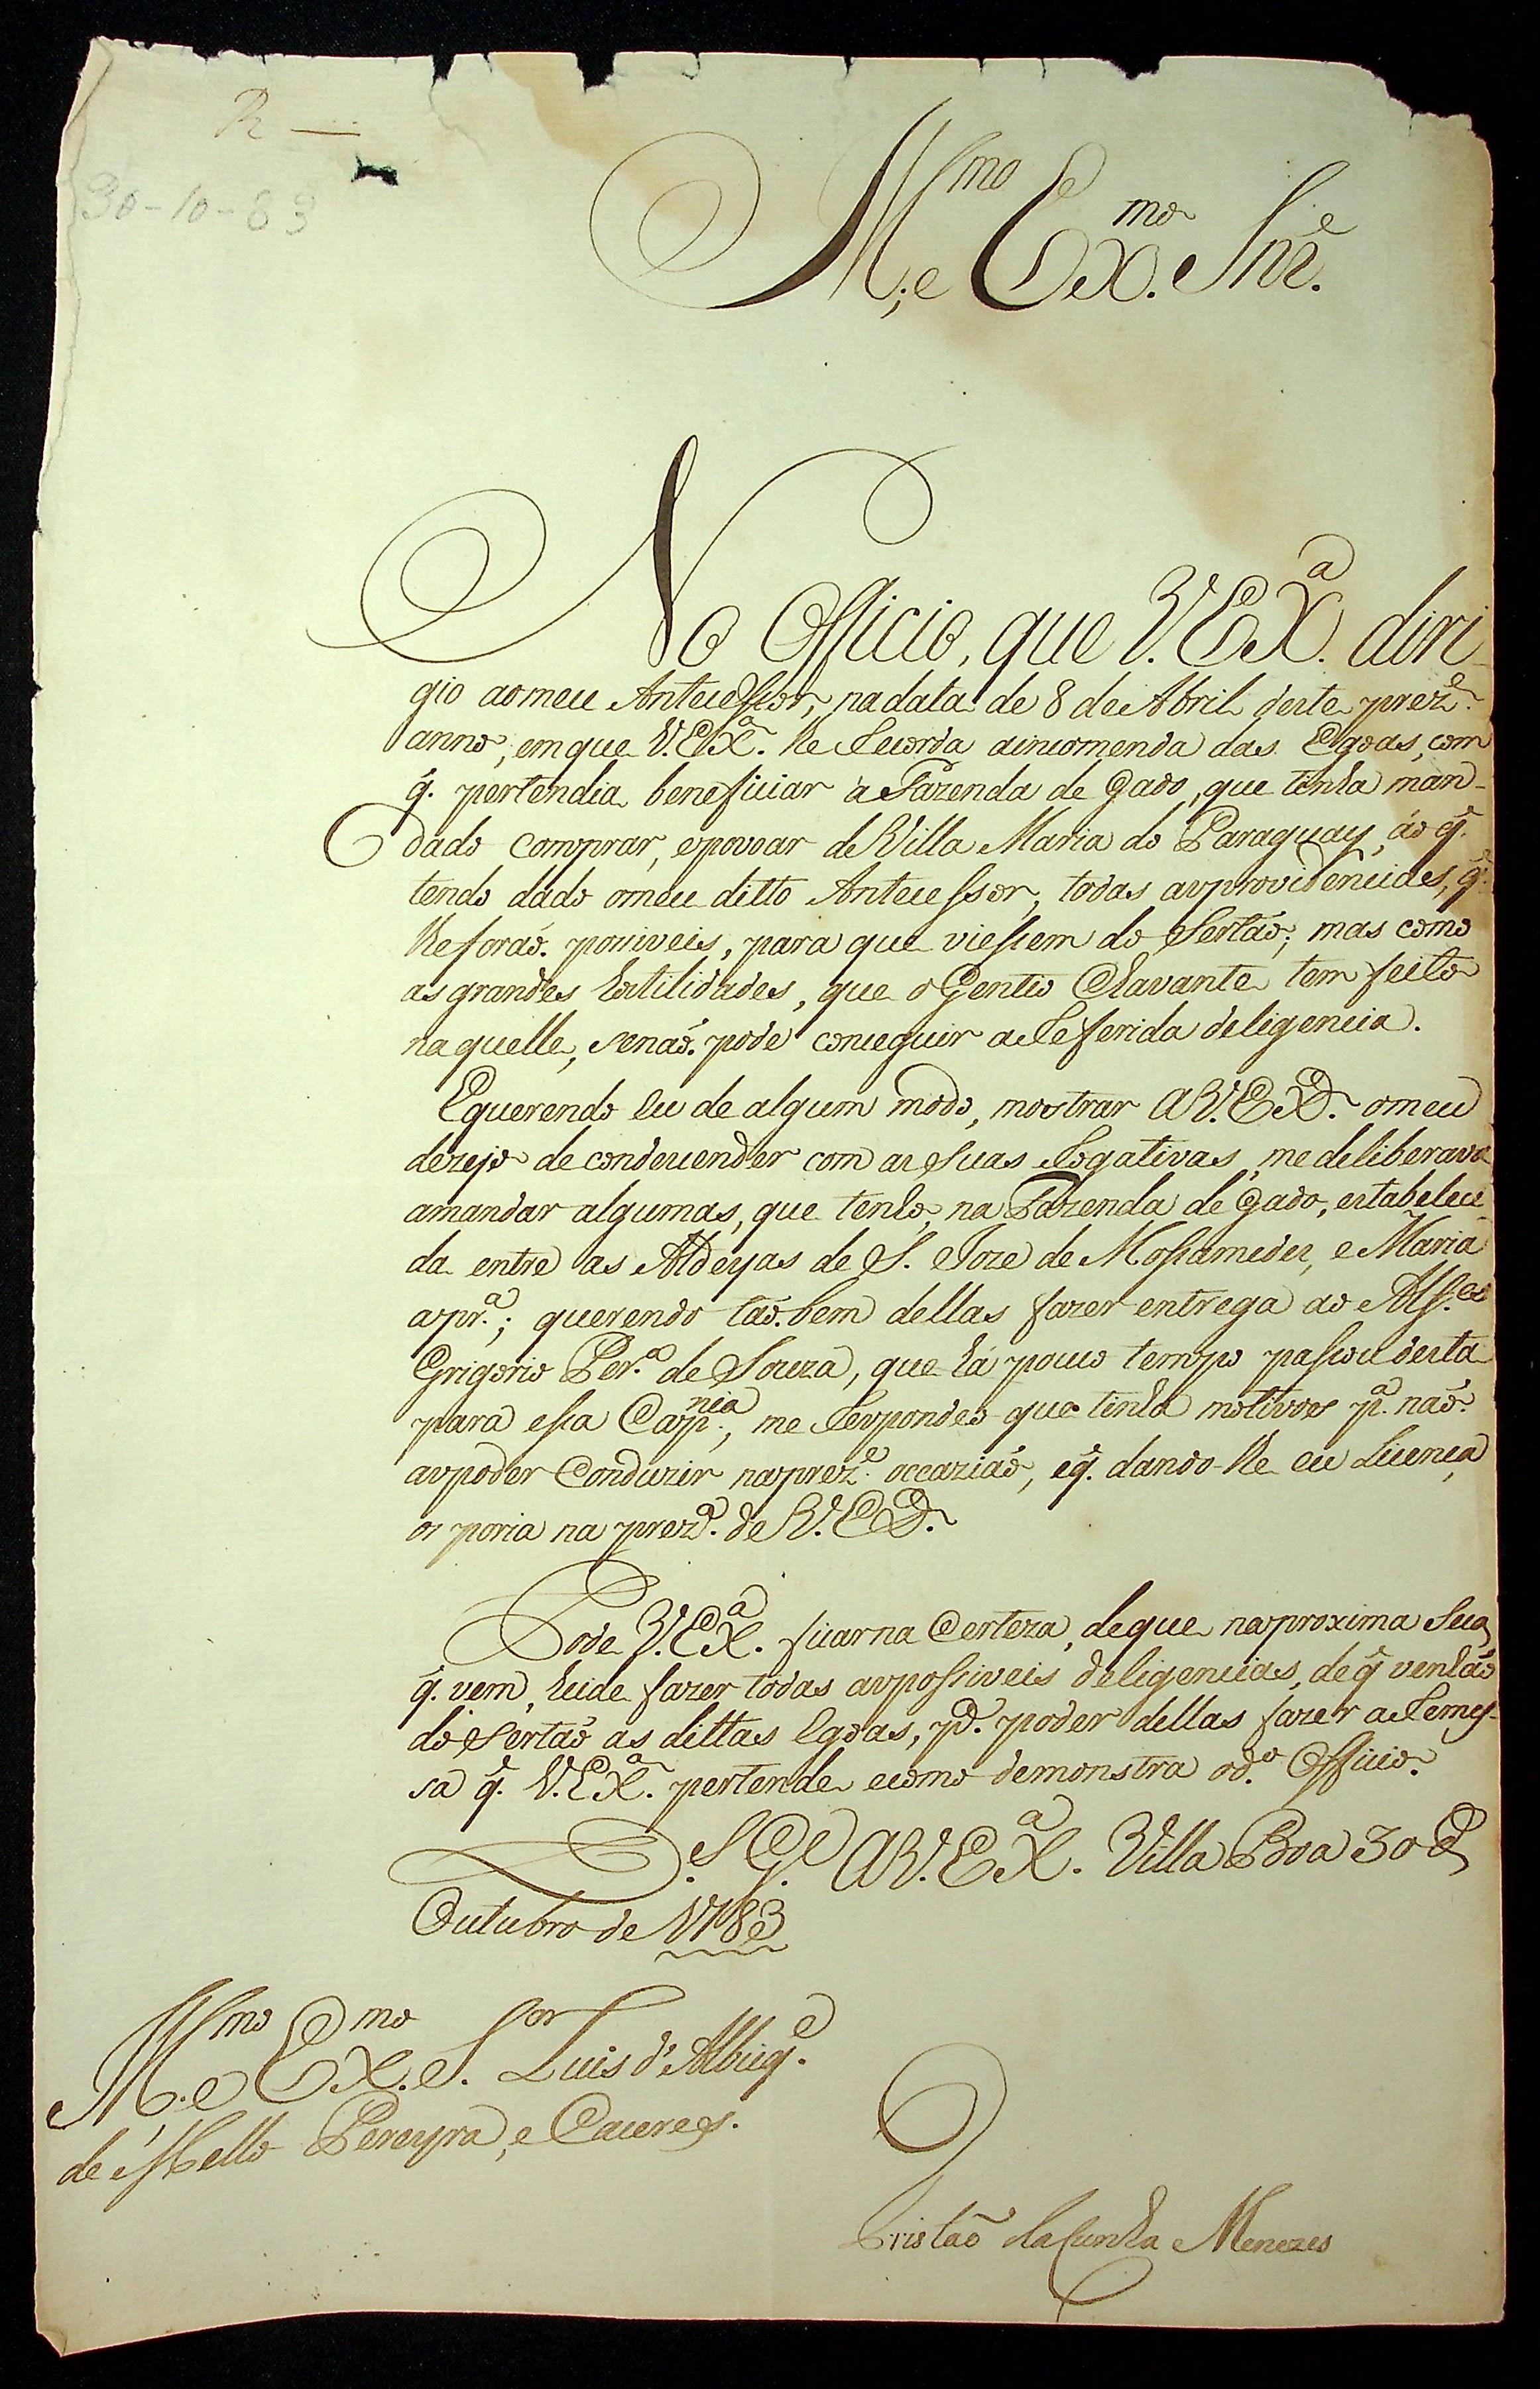 R —
30-10-83
Ill.mo e Ex.mo Snr.e
No Officio, que V. EX.a diri-
gio ao meu Antecessor, na data de 8 de Abril deste prez.e
anno, em que V. EX.a lhe Recorda a incomenda das Egoas, com
q̃. pertendia beneficiar a Fazenda de Gado, que tinha man-
dado comprar, e povoar de Villa Maria do Paraguay, áo q̃.
tendo dado o meu ditto Antecessor, todas as providencias, q̃.
lhe foraõ. possiveis, para que viessem do Sertaõ; mas como
as grandes hostilidades, que o Gentio Chavante tem feito
naquelle, se naõ. pode conseguir a Referida deligencia.
E querendo eu de algum modo, mostrar a V. EX.a o meu
dezejo de condescender com as suas Rogativas, me deliberava
a mandar algumas, que tenho, na Fazenda de Gado, estabeleci-
da entre as Aldeyas de S. Joze de Mossamedes, e Maria
a pr.a; querendo taõ. bem dellas fazer entrega ao Alf.es
Grigorio Per.a de Souza, que há pouco tempo passou desta
para essa Capp.nia, me Respondeo que tinha motivos p.a naõ.
as poder Conduzir na prez.e occaziaõ, e q̃. dando-lhe eu Licença
os poria na prez.a de V. EX.a
Pode V. EX.a ficar na Certeza, de que na proxima Seca
q̃. vem, heide fazer todas as possiveis deligencias, de q̃ venhaõ
do Sertaõ as dittas Egoas, p.a poder dellas fazer a Remes-
sa q̃. V. EX.a pertende e como demonstra o d.o Officio.
D.s G.e a V. EX.a Villa Boa 30 de
Outubro de 1783
Ill.mo e Ex.mo S.or Luis d'Albuq.e
de Mello Pereyra, e Caceres.
Tristaõ da Cunha Menezes